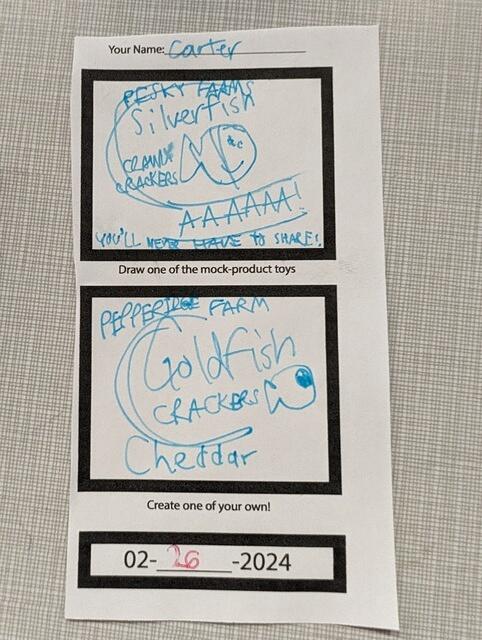 Your Name: Carter
PESKY FARMS
Silverfish
CRAWLY
CRACKERS
AAAAAA!
YOU'LL NEVER HAVE TO SHARE!
Draw one of the mock-product toys
PEPPERIDGE FARM
Goldfish
CRACKERS
Cheddar
Create one of your own!
02-26-2024